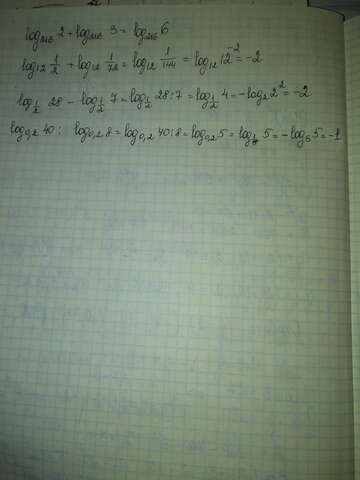 log₂₁₆ 2 + log₂₁₆ 3 = log₂₁₆ 6
log₁₂ 1/2 + log₁₂ 1/72 = log₁₂ 1/144 = log₁₂ 12⁻² = -2
log_{1/2} 28 - log_{1/2} 7 = log_{1/2} 28:7 = log_{1/2} 4 = -log₂ 2² = -2
log_{0,2} 40 : log_{0,2} 8 = log_{0,2} 40:8 = log_{0,2} 5 = log 5 = -log₅ 5 = -1